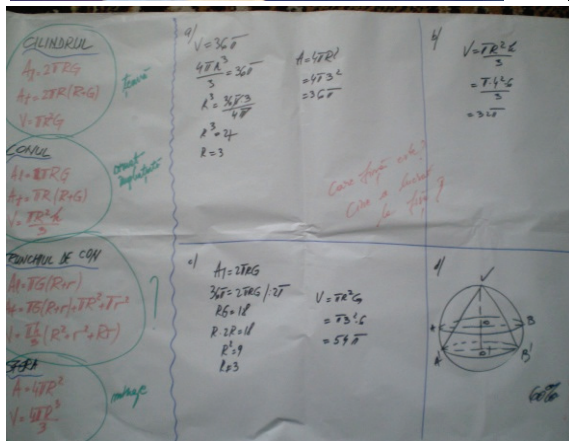 CILINDRUL
Al=2πRG
At=2πR(R+G)
V=πR²G
CONUL
Al=πRG
At=πR(R+G)
V=πR²h/3
TRUNCHIUL DE CON
Al=πG(R+r)
At=πG(R+r)+πR²+πr²
V=πh/3(R²+r²+Rr)
?
SFERA
A=4πR²
V=4πR³/3
a)
V=36π
4πR³/3=36π
R³=36π·3/4π
R³=27
R=3
A=4πR²
=4π3²
=36π
b)
V=πR²h/3
=π·4²·6/3
=32π
Care fişă este?
Cine a lucrat
la fişă?
c)
Al=2πRG
36π=2πRG/:2π
RG=18
R·2R=18
R²=9
R=3
V=πR²G
=π3²·6
=54π
d)
V
A
O
B
A'
O'
B'
60%